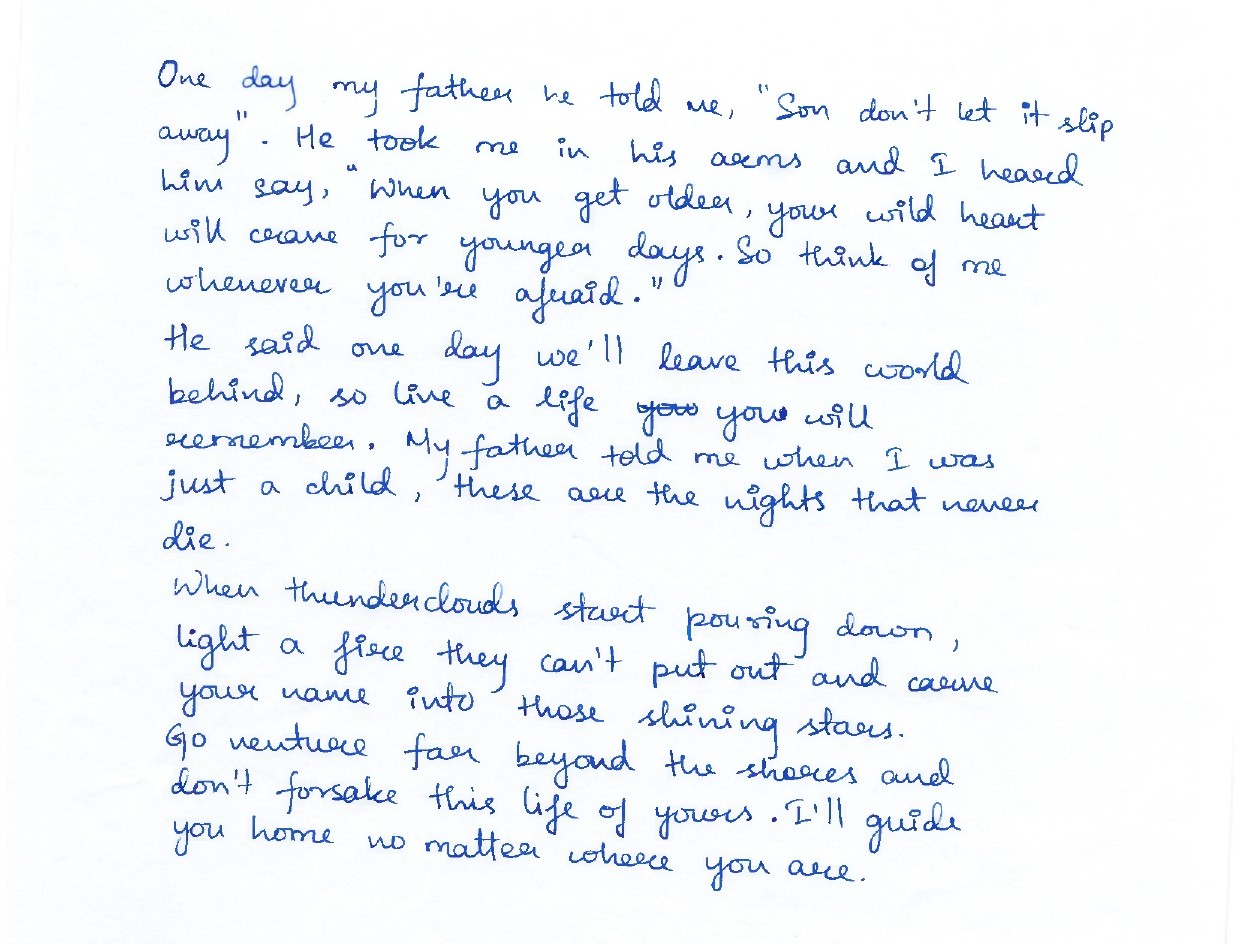 One day my father he told me, "Son don't let it slip
away". He took me in his arms and I heard
him say, "When you get older, your wild heart
will crave for younger days. So think of me
whenever you're afraid."
He said one day we'll leave this world
behind, so live a life you you will
remember. My father told me when I was
just a child, these are the nights that never
die.
When thunderclouds start pouring down,
light a fire they can't put out and carve
your name into those shining stars.
Go venture far beyond the shores and
don't forsake this life of yours. I'll guide
you home no matter where you are.